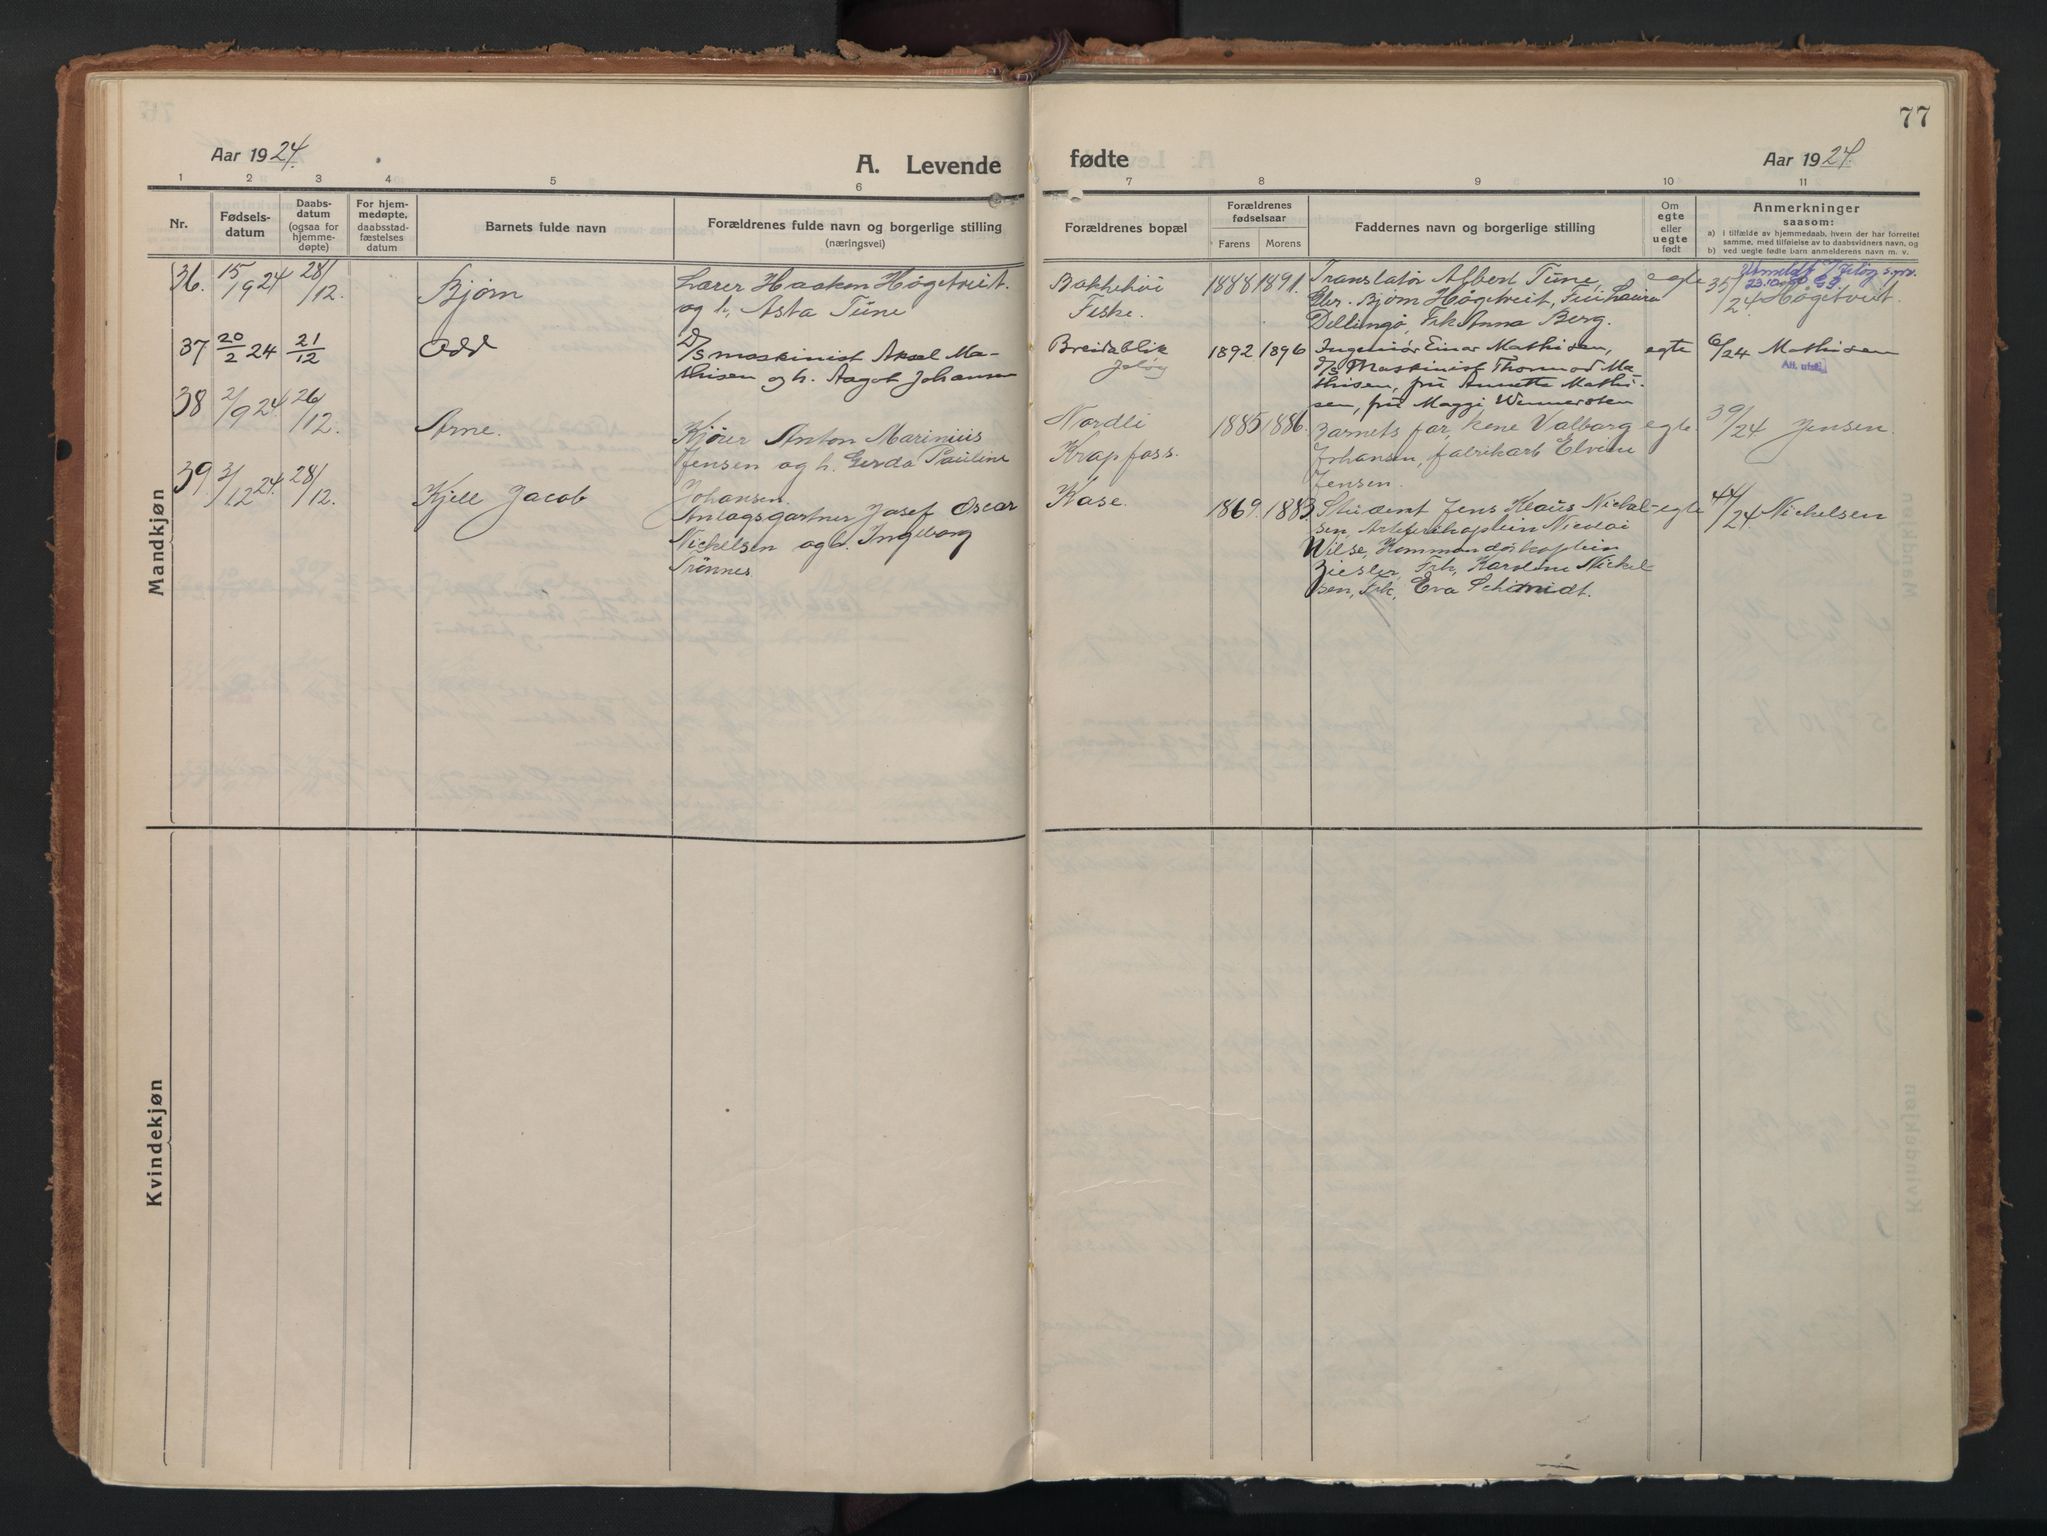 77
Aar 1924.
A. Levende
fødte
Aar 1924.
1 2 3 4 5 6 7 8 9 10 11
Nr.
Fødsels-
datum
Daabs-
datum
(ogsaa for
hjemme-
døpte)
For hjem-
medøpte,
daabsstad-
fæstelses
datum
Barnets fulde navn
Forældrenes fulde navn og borgerlige stilling
(næringsvei)
Forældrenes bopæl
Forældrenes
fødselsaar
Farens Morens
Faddernes navn og borgerlige stilling
Om
egte
eller
uegte
født
Anmerkninger
saasom:
a) i tilfælde av hjemmedaab, hvem der har forrettet
samme, med tilføielse av to daabsvidners navn, og
b) ved uegte fødte barn anmelderens navn m. v.
Mandkjøn
36. 15/9 24 28/12. Bjørn
Lærer Haaken Høgetveit.
og h. Asta Tune
Bakkehøi
Feske.
1888 1891.
Translatør Albert Tune,
Elev. Bjørn Høgetveit, Fru Laura
Dellingø, Frk Anna Berg.
egte
Utmeldt
23.10
35/24 Høgetveit.
37 20/2 24 21/12 Odd
D/S maskinist Aksel Ma-
thisen og h. Aagot Johansen
Breidablik
Jeløy
1892 1896
Ingeniør Einar Mathisen,
D/S Maskinist Thormod Ma-
thisen, fru Annetta Mathi-
sen, fru Maggi Wennersten
egte
6/24 Mathisen
Att. utst.
38 2/9 24. 26/12. Arne.
Kjører Anton Marinius
Jensen og h. Gerda Pauline
Johansen.
Nordli
Krapfoss.
1885 1886.
Barnets far, kone Valborg
Johansen, fabrikarb Elvin
Jensen.
egte
39/24 Jensen.
39. 3/12 24. 28/12. Kjell Jacob
Anlagsgartner Josef Oscar
Nickelsen og h. Ingeborg
Trønnes.
Kase.
1869. 1883.
Student Jens Klaus Nickel-
sen, Artlerikaptein Nicolai
Wilse, Kommandørkaptein
Ziesler, Frk, Karoline Nickel-
sen, Frk, Eva Schimidt.
egte
44/24 Nickelsen
Kvindekjøn